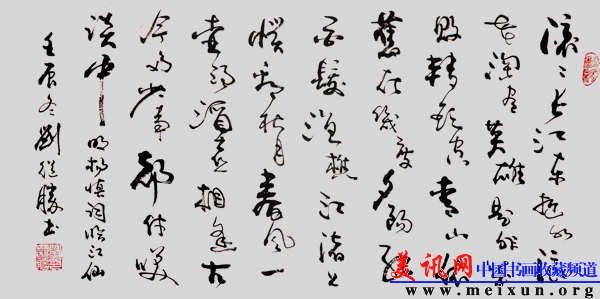 滚〻长江东逝水浪
花淘尽英雄是非成
败转头空青山依
舊在幾度夕阳红
白髮渔樵江渚上
惯看秋月春风一
壶浊酒喜相逢古
今多少事都付笑
谈中 明杨慎词临江仙
壬辰冬劉继勝书
美讯网 中国书画收藏频道
www.meixun.org